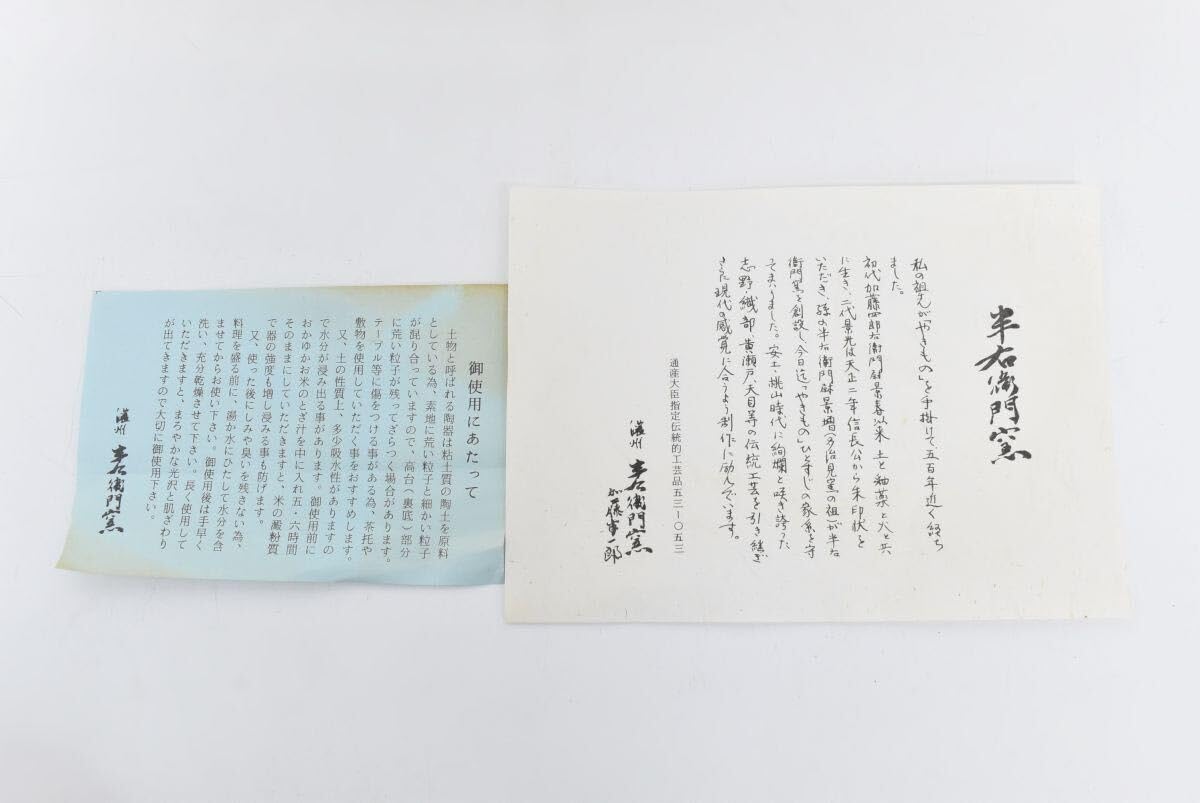 半右衛門窯
私の祖先が「やきもの」を手掛けて五百年近く経ち
ました。
初代加藤四郎右衛門尉景春以来土と釉薬と火と共
に生き、二代景光は天正二年信長公から朱印状を
いただき、孫の半右衛門尉景増(多治見窯の祖)が半右
衛門窯を創設し今日迄「やきもの」ひとすじの家系を守
ってまいりました。安土・桃山時代に絢爛と咲き誇った
志野・織部・黄瀬戸・天目等の伝統工芸を引き継ぎ
さらに現代の感覚に合うよう制作に励んでいます。
通産大臣指定伝統的工芸品五三ー〇五三
濃州 半右衛門窯
加藤幸一郎
御使用にあたって
土物と呼ばれる陶器は粘土質の陶土を原料
としている為、素地に荒い粒子と細かい粒子
が混り合っていますので、高台(裏底)部分
に荒い粒子が残ってざらつく場合があります。
テーブル等に傷をつける事がある為、茶托や
敷物を使用していただく事をおすすめします。
又、土の性質上、多少吸水性がありますの
で水分が浸み出る事があります。御使用前に
おかゆかお米のとぎ汁を中に入れ五・六時間
そのままにしていただきますと、米の澱粉質
で器の強度も増し浸みる事も防げます。
又、使った後にしみや臭いを残さない為、
料理を盛る前に、湯か水にひたして水分を含
ませてからお使い下さい。御使用後は手早く
洗い、充分乾燥させて下さい。長く使用して
いただきますと、まろやかな光沢と肌ざわり
が出てきますので大切に御使用下さい。
濃州 半右衛門窯